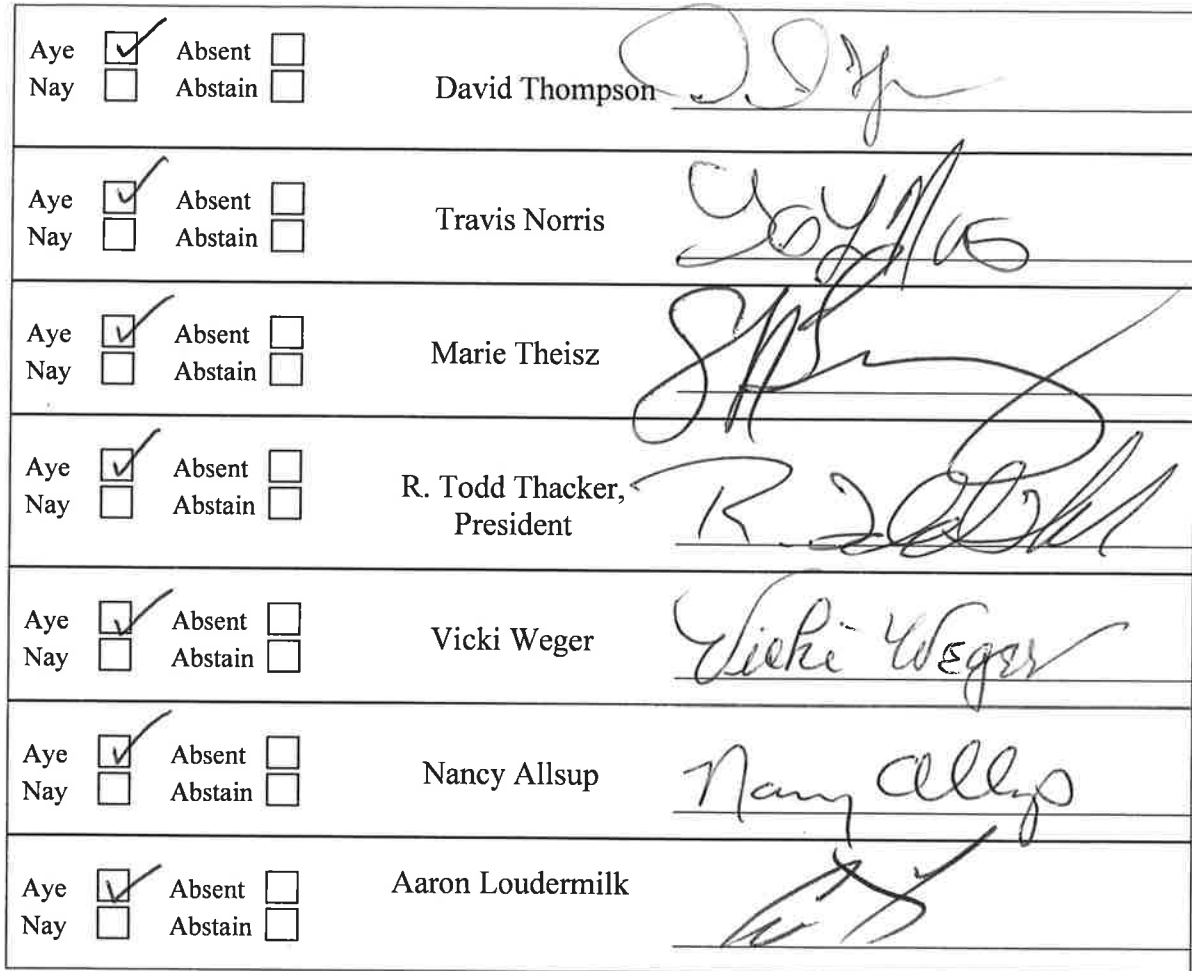 Aye Absent
Nay Abstain
David Thompson
Aye Absent
Nay Abstain
Travis Norris
Aye Absent
Nay Abstain
Marie Theisz
Aye Absent
Nay Abstain
R. Todd Thacker,
President
Aye Absent
Nay Abstain
Vicki Weger
Vicki Weger
Aye Absent
Nay Abstain
Nancy Allsup
Nancy Allsup
Aye Absent
Nay Abstain
Aaron Loudermilk